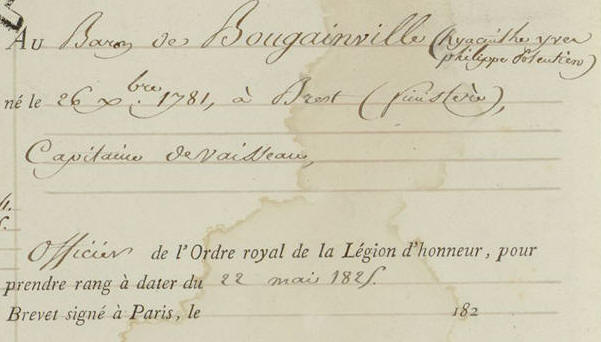 Au Baron de Bougainville (hyacinthe yves
philippe Potentien)
né le 26 xbre 1781, à Brest (finistère),
Capitaine de vaisseau,
Officier de l'Ordre royal de la Légion d'honneur, pour
prendre rang à dater du 22 mai 1825.
Brevet signé à Paris, le 182